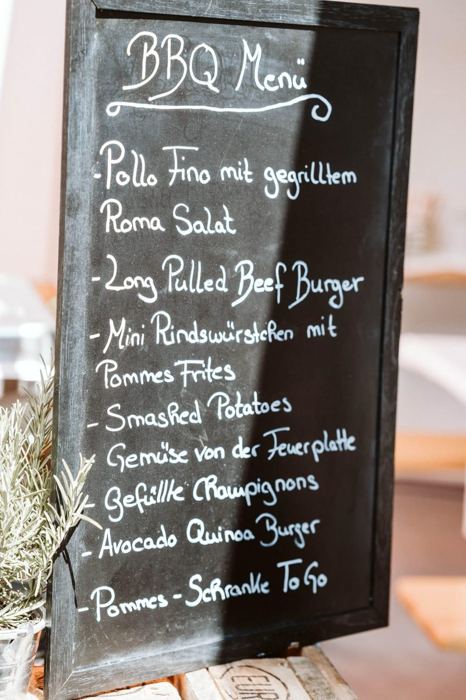 BBQ Menü
- Pollo Fino mit gegrilltem
Roma Salat
- Long Pulled Beef Burger
- Mini Rindswürstchen mit
Pommes Frites
- Smashed Potatoes
- Gemüse von der Feuerplatte
- Gefüllte Champignons
- Avocado Quinoa Burger
- Pommes - Schranke To Go
EUR